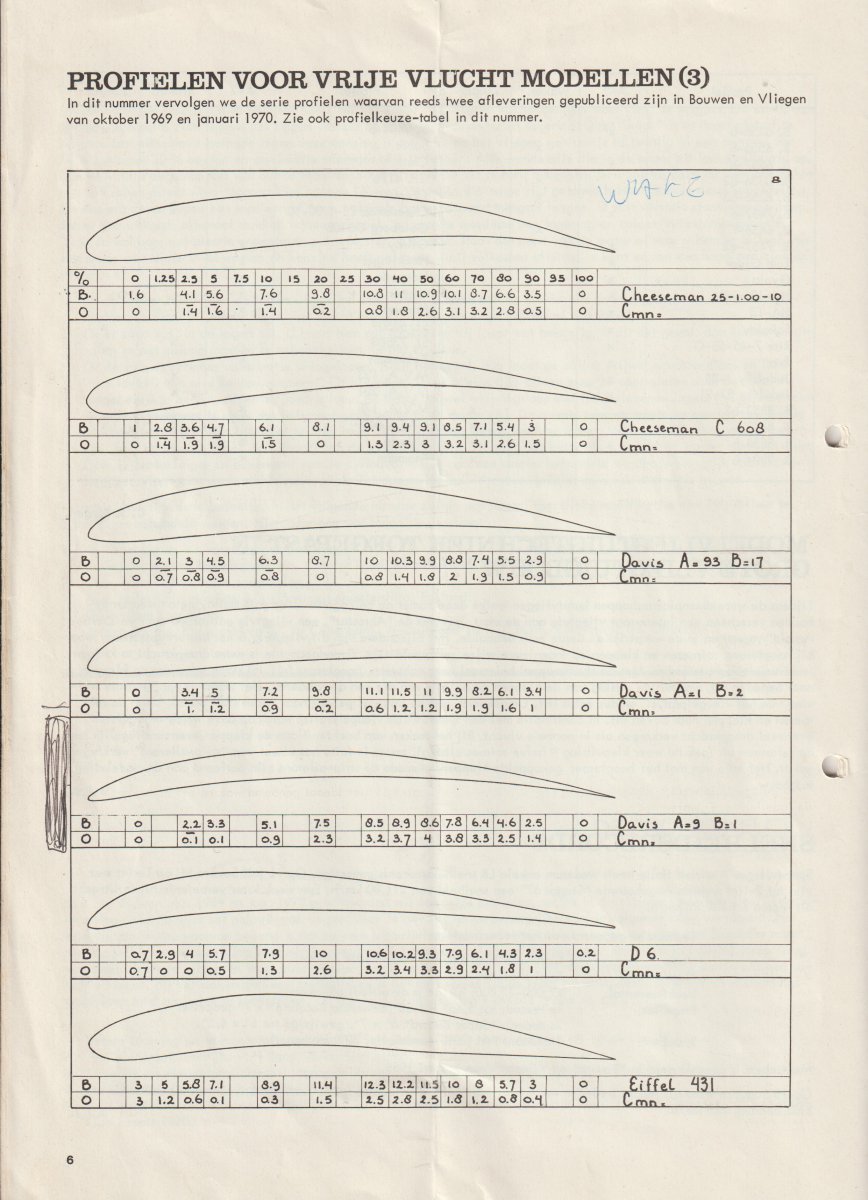 PROFIELEN VOOR VRIJE VLUCHT MODELLEN (3)
In dit nummer vervolgen we de serie profielen waarvan reeds twee afleveringen gepubliceerd zijn in Bouwen en Vliegen
van oktober 1969 en januari 1970. Zie ook profielkeuze-tabel in dit nummer.
WAKE
8
% 0 1.25 2.5 5 7.5 10 15 20 25 30 40 50 60 70 80 90 95 100
B. 1.6 4.1 5.6 7.6 9.8 10.8 11 10.9 10.1 8.7 6.6 3.5 0 Cheeseman 25-1.00-10
O 0 1.4 1.6 1.4 0.2 0.8 1.8 2.6 3.1 3.2 2.8 0.5 0 Cmn=
B 1 2.8 3.6 4.7 6.1 8.1 9.1 9.4 9.1 8.5 7.1 5.4 3 0 Cheeseman C 608
O 0 1.4 1.9 1.9 1.5 0 1.3 2.3 3 3.2 3.1 2.6 1.5 0 Cmn=
B 0 2.1 3 4.5 6.3 8.7 10 10.3 9.9 8.8 7.4 5.5 2.9 0 Davis A=93 B=17
O 0 0.7 0.8 0.9 0.8 0 0.8 1.4 1.8 2 1.9 1.5 0.9 0 Cmn=
B 0 3.4 5 7.2 9.8 11.1 11.5 11 9.9 8.2 6.1 3.4 0 Davis A=1 B=2
O 0 1. 1.2 0.9 0.2 0.6 1.2 1.2 1.9 1.9 1.6 1 0 Cmn=
B 0 2.2 3.3 5.1 7.5 8.5 8.9 8.6 7.8 6.4 4.6 2.5 0 Davis A=9 B=1
O 0 0.1 0.1 0.9 2.3 3.2 3.7 4 3.8 3.3 2.5 1.4 0 Cmn=
B 0.7 2.9 4 5.7 7.9 10 10.6 10.2 9.3 7.9 6.1 4.3 2.3 0.2 D 6.
O 0.7 0 0 0.5 1.3 2.6 3.2 3.4 3.3 2.9 2.4 1.8 1 0 Cmn=
B 3 5 5.8 7.1 8.9 11.4 12.3 12.2 11.5 10 8 5.7 3 0 Eiffel 431
O 3 1.2 0.6 0.1 0.3 1.5 2.5 2.8 2.5 1.8 1.2 0.8 0.4 0 Cmn=
6